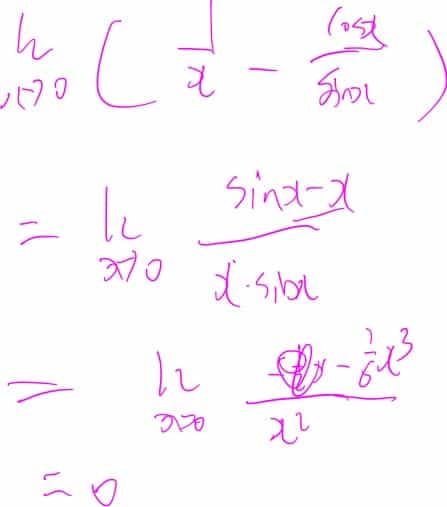 lim x→0 ( 1/x − cosx/sinx )
= lim x→0 (sinx − x)/(x·sinx)
= lim x→0 (−1/6 x³)/x²
= 0